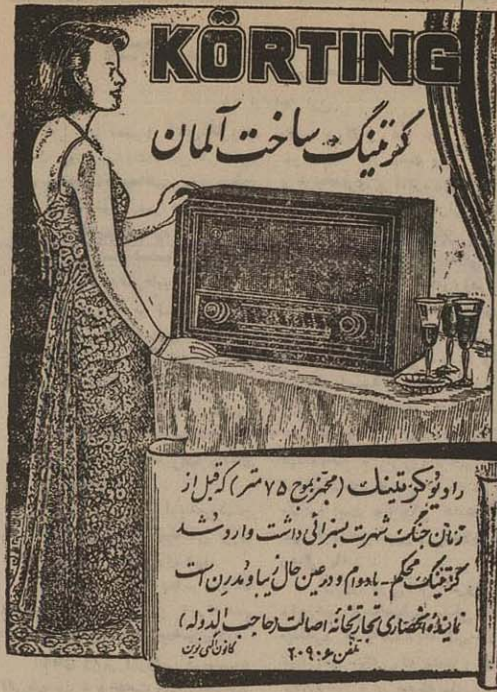 KÖRTING
کرتینگ ساخت آلمان
رادیو کرتینگ (مجهز بموج ۷۵ متر) که قبل از
زمان جنگ شهرت بسزائی داشت وارد شد
کرتینگ محکم - بادوام و در عین حال زیبا و مدرن است
نماینده انحصاری تجارتخانه اصالت (حاجب الدوله)
تلفن ۶۰۹۰۶
کانون آگهی نوین